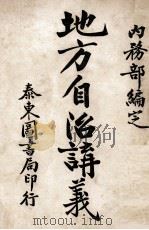 內務部編定
地方自治講義
泰東圖書局印行
www.duxiu.com